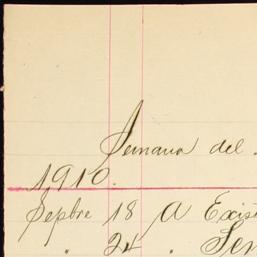 Semana del
1910.
Sepbre 18 A Exis
" 24 .